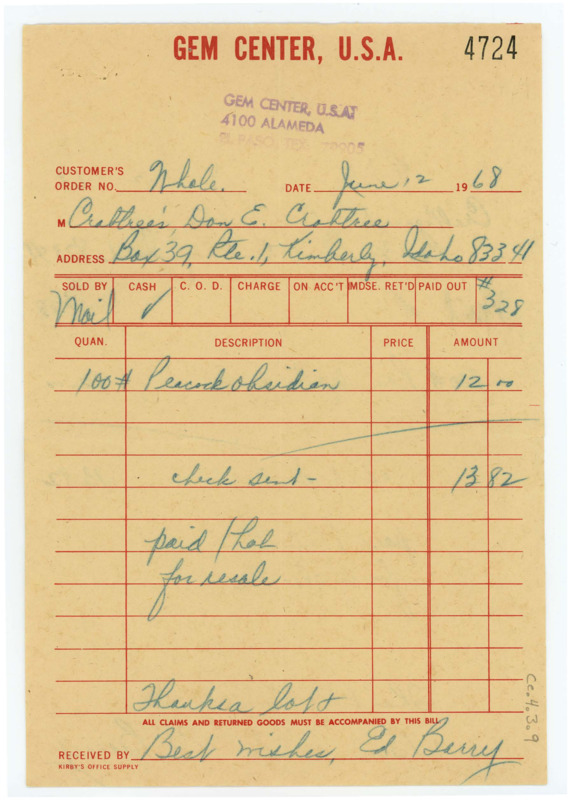 GEM CENTER, U.S.A. 4724
GEM CENTER, U.S.A.
4100 ALAMEDA
EL PASO, TEX. 79905
CUSTOMER'S
ORDER NO. Whole. DATE June 12 1968
M Crabtree's, Don E. Crabtree
ADDRESS Box 39, Rte. 1, Kimberly, Idaho 83341
SOLD BY CASH C. O. D. CHARGE ON ACC'T MDSE. RET'D PAID OUT #
Mail ✓ 328
QUAN. DESCRIPTION PRICE AMOUNT
100# Peacock obsidian 12 00
check sent - 13 82
paid
for resale
Thanks a lot
ALL CLAIMS AND RETURNED GOODS MUST BE ACCOMPANIED BY THIS BILL
RECEIVED BY Best wishes, Ed Barry
KIRBY'S OFFICE SUPPLY
Cc.4.3.9